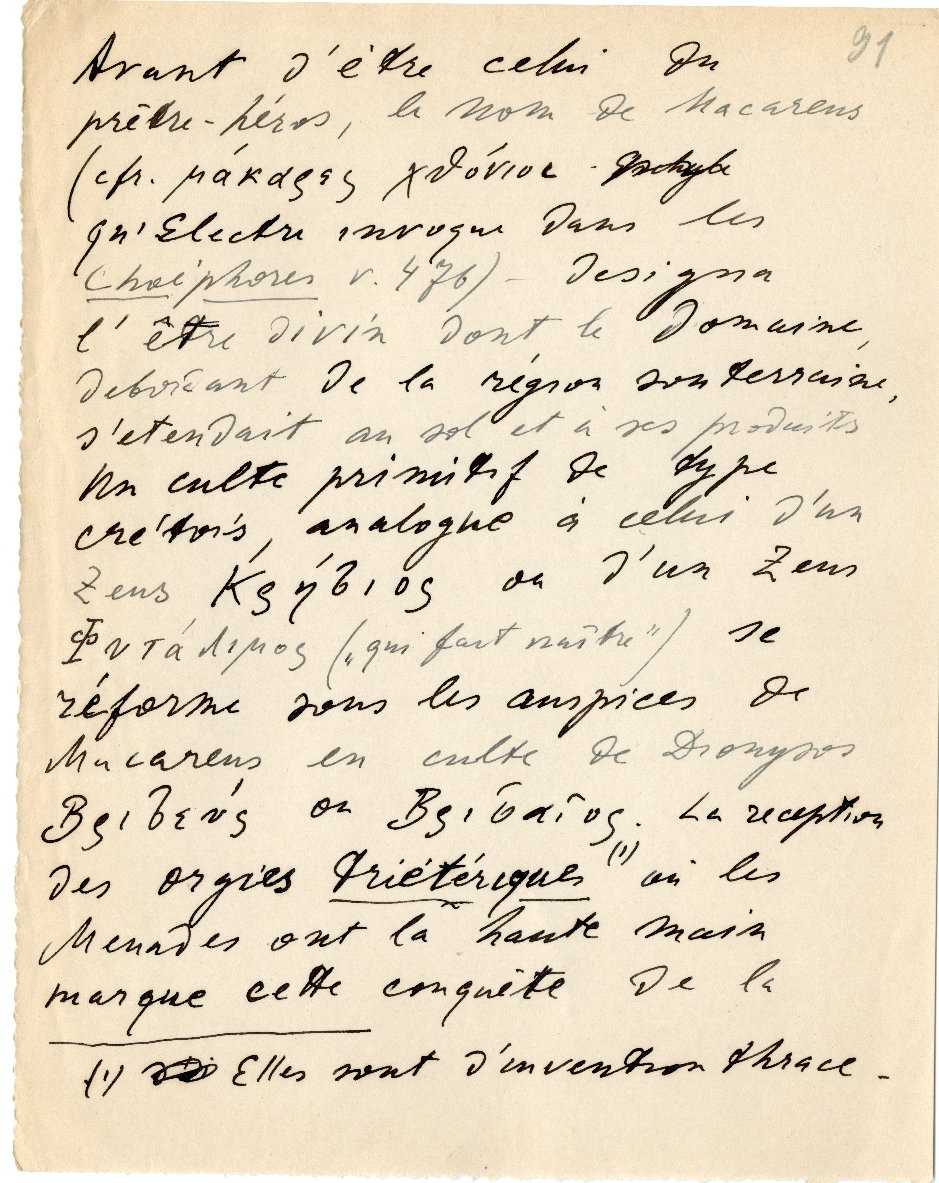 91
Avant d'être celui du
prêtre-héros, le nom de Macareus
(cfr. μάκαρες χθόνιοι
qu'Electre invoque dans les
Choéphores v. 476) - designa
l'être divin dont le domaine,
debordant de la région souterraine,
s'etendait au sol et à ses produits
Un culte primitif de type
crétois, analogue à celui d'un
Zeus Κρήσιος ou d'un Zeus
Φυτάλιμος („qui fait naître") se
réforme sous les auspices de
Macareus en culte de Dionysos
Βρισεύς ou Βρισαῖος. La reception
des orgies triétériques (1) où les
Menades ont la haute main
marque cette conquête de la
(1) Elles sont d'invention thrace -